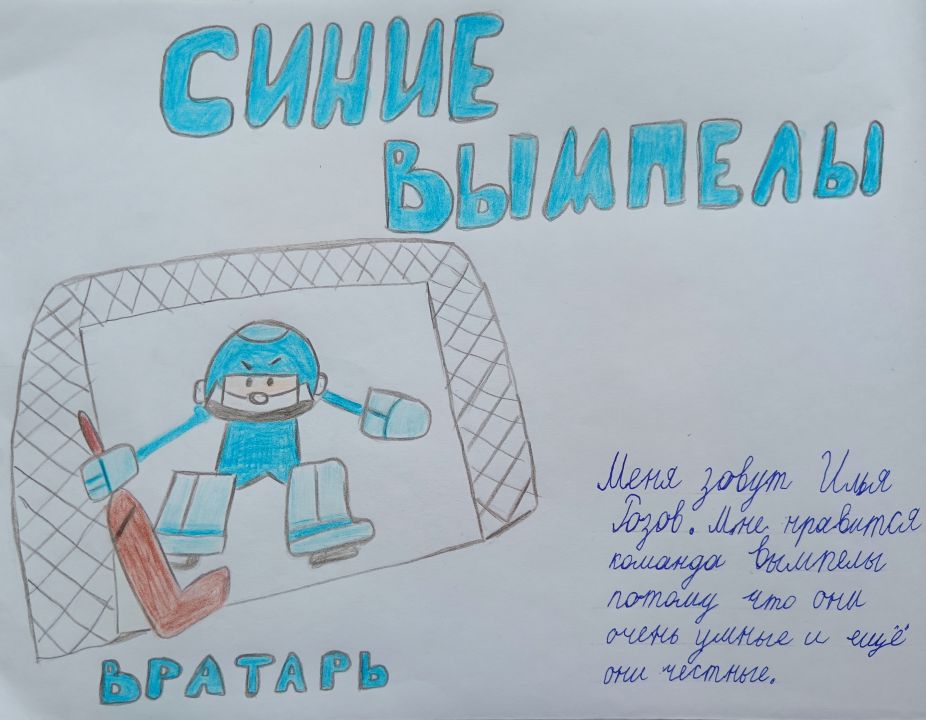 СИНИЕ
ВЫМПЕЛЫ
ВРАТАРЬ
Меня зовут Илья
Гозов. Мне нравится
команда вымпелы
потому что они
очень умные и ещё
они честные.